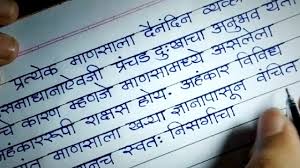 प्रत्येक माणसाला दैनंदिन
समाधानाऐवजी प्रचंड दुःखाचा अनुभव येतो
चे कारण म्हणजे माणसामध्ये असलेला
अहंकाररूपी राक्षस होय. अहंकार विविध
माणसाला खऱ्या ज्ञानापासून वंचित
स्वतः निसर्गाचा